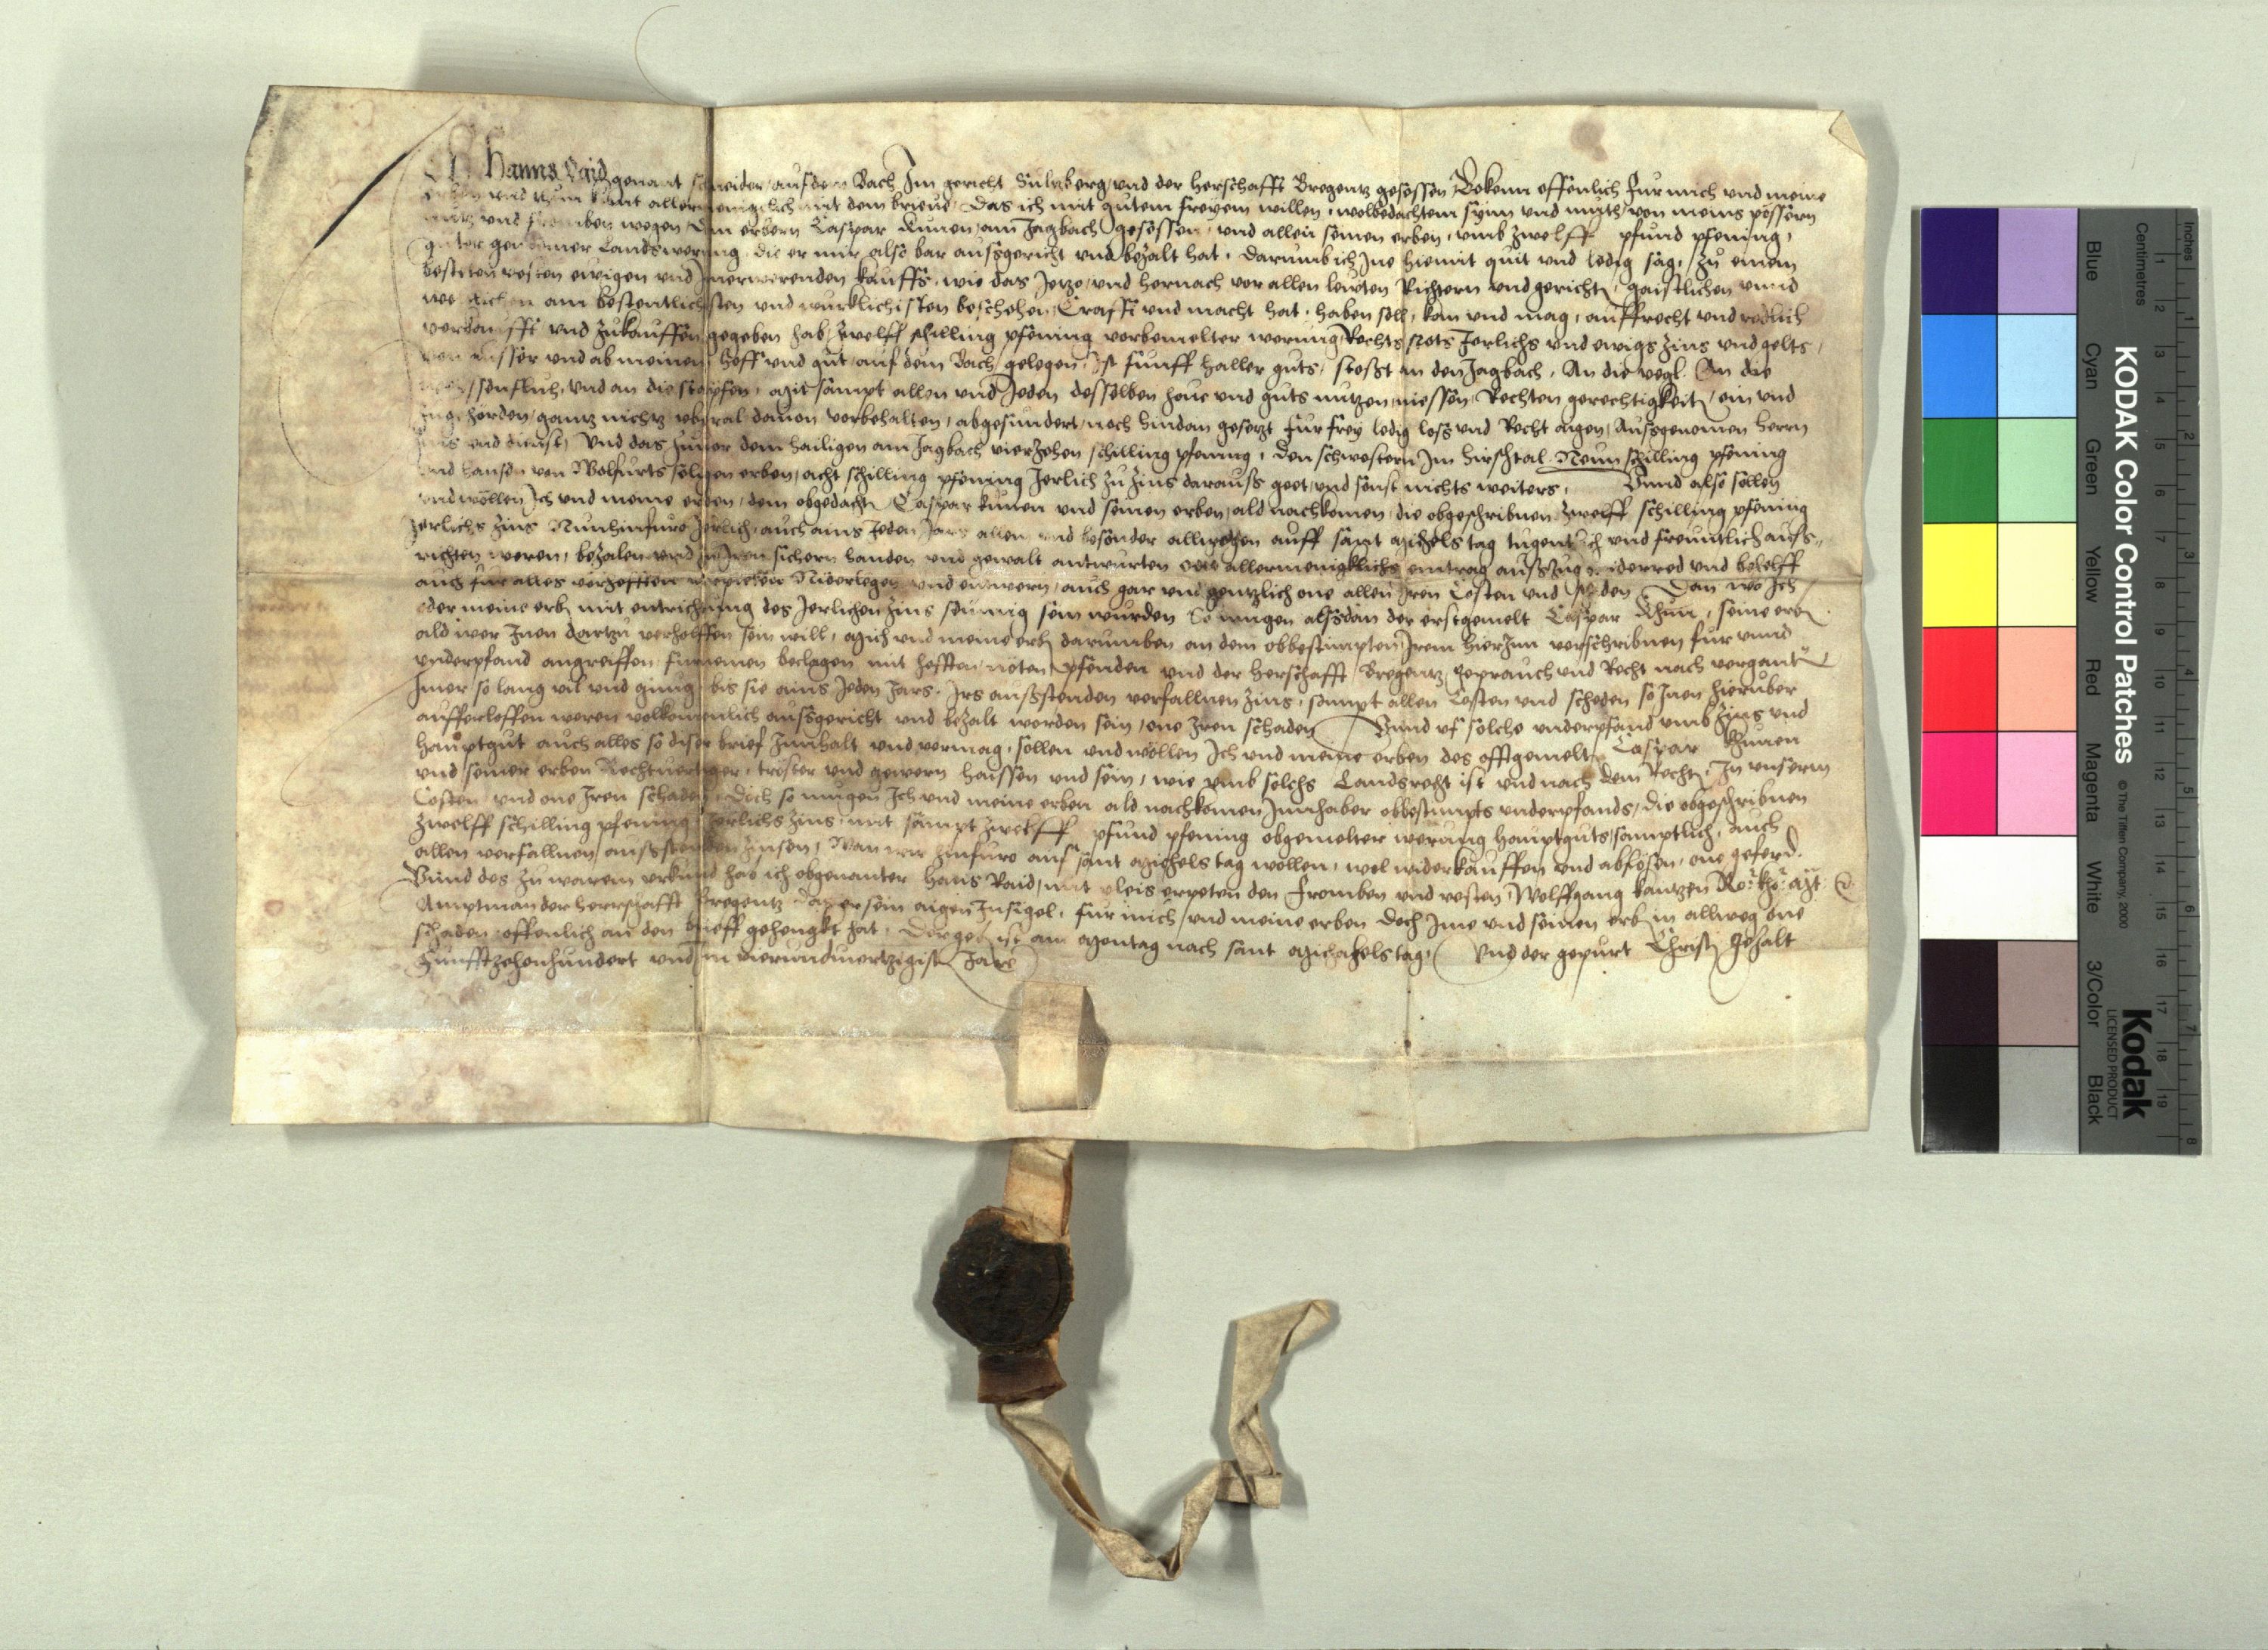 Ich Hanns Raid genant schneider auf dem Bach Im gericht Sultzberg und der herschafft Bregentz gesessen, Bekenn offenlich fur mich und meine
erben und thun kunt allermenigclich mit dem brieve, Das ich mit gutem freyem willen, wolbedachtem synn und muth von meins pessern
nutz und fromben wegen Dem erbern Caspar Kunen am Jagbach gesessen, und allen seinen erben, umb zwelff pfund pfening,
guter genemer Landswerung, die er mir also bar aussgericht und bezalt hat, darumb ich Jne hiemit quit und ledig sag, zu einem
steten vesten ewigen und Jmerwerenden kauffs, wie das Jetzo und hernach vor allen leuten Richtern und gerichten, gaistlichen unnd
weltlichen am bestentlichsten und wurklichisten beschehen, Crafft und macht hat, haben soll, kan und mag, auffrecht und redlich
verkaufft und zukauffen gegeben hab, zwelff schilling pfening vorbemelter werung Rechts stets Jerlichs und ewigs zins und gelts,
von ausser und ab meinem hoff und gut auf dem Bach gelegen, Jst funff haller guts, stosst an den Jagbach, An die An die
und an die mit sampt allen und Jeden desselben haus und guts nutzen niessen, Rechten gerechtigkeiten, ein und
zugehorden, gantz nichtz uberal davon vorbehalten, abgesundert, noch hindan gesetzt fur frey ledig loss und Recht aigen, Aussgenomen herrn
zins und dienst, Und das zuvor dem hailigen am Jagbach vierzehen schilling pfening, den schwestern Im hirschtal Neun schilling pfening
und hansen von Wolfurts seligen erben, acht schilling pfening Jerlich zu zins darauss geet, und sonst nichts weiters, Unnd also sollen
und wollen Ich und meine erben, dem obgedachten Caspar kunen und seinen erben, ald nachkomen, die obgeschribnen zwelff schilling pfening
Jerlichs zins Nunhinfuro Jerlich, auch ains Jeden Jars allen und besonder allwegen auff sant Michels tag tugentlich und freuntlich auss-
richten weren, bezalen und zu Jren sichern handen und gewalt antwurten one allermenigklichs eintrag ausszug widerred und behelff
auch fur alles verhefften verpieten Niderlegen und entwern, auch gar und gentzlich one allen Jren Costen und schaden, Dan wo Ich
oder meine erben mit entrichtung des Jerlichen zins seumig sein wurden So mugen alssdan der erstgemelt Caspar Khun, seine erben
ald wer Jnen dartzu verholffen sein will, Mich und meine erben darumben an dem obbestimpten Jrem hierInn verschribnen fur unnd
underpfand angreiffen furnemen beclagen mit hefften noten pfenden und der herschafft Bregentz geprauch und Recht nach verganten
Jmer so lang vil und gnug bis sie ains Jeden Jars, Jrs aussstenden verfallnen zins, sampt allen Costen und scheden so Jnen hieruber
aufferloffen weren volkomenlich aussgericht und bezalt worden sein, one Jren schaden, Unnd uf solche underpfand umb zins und
hauptgut auch alles so diser brief Jnnhalt und vermag, sollen und wollen Ich und meine erben des offtgemelten Caspar Kunen
und seiner erben Rechtvertiger, troster und gewern haissen und sein, wie umb solchs Landsrecht ist und nach dem Rechten, In unserm
Costen und one Jren schaden, Doch so mugen Ich und meine erben ald nachkomen Innhaber obbestimpts underpfands, die obgeschribnen
zwelff schilling pfening Jerlichs zins, mit sampt zwelff pfund pfening obgemelter werung hauptguts samptlich, auch
allen verfallnen aussstenden zinsen, Wan wir hinfuro auf sant Michels tag wollen, wol widerkauffen und ablosen, one geferd.
Unnd des zu warem urkund hab ich obgenanter Hans Raid, mit vleis erpeten den fromben und vesten Wolffgang kantzen Ro: kho: Mt: &
Amptman der herrschafft Bregentz Das er sein aigen Insigel, fur mich und meine erben Doch Jme und seinen erben in allweg one
schaden offenlich an den brieff gehengkt hat, Der geben ist am Montag nach sant Michahels tag, Und der gepurt Christi gezalt
Funfftzehenhundert und Im vierundviertzigisten Jare
KODAK Color Control Patches
© The Tiffen Company, 2000
Kodak
LICENSED PRODUCT
Blue Cyan Green Yellow Red Magenta White 3/Color Black
Inches
Centimetres
1 2 3 4 5 6 7 8
1 2 3 4 5 6 7 8 9 10 11 12 13 14 15 16 17 18 19